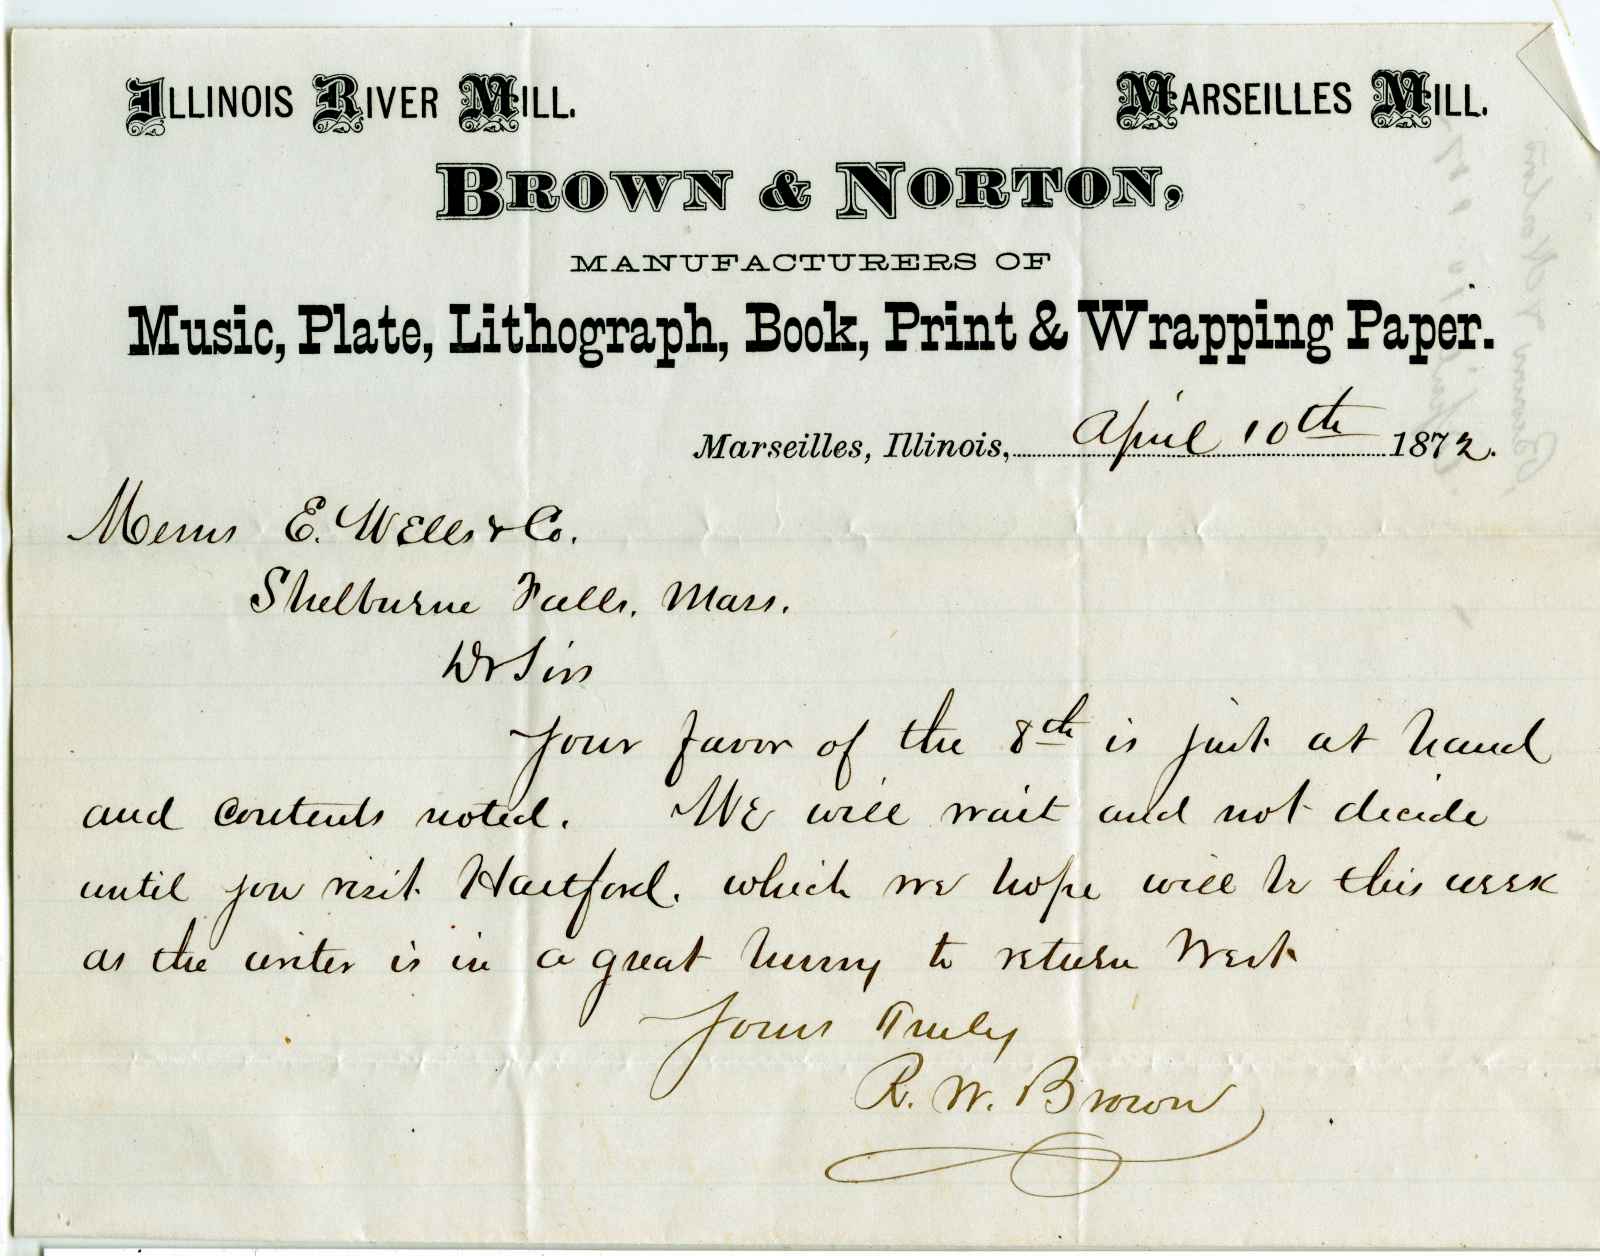 ILLINOIS RIVER MILL. MARSEILLES MILL.
BROWN & NORTON,
MANUFACTURERS OF
Music, Plate, Lithograph, Book, Print & Wrapping Paper.
Marseilles, Illinois, April 10th 1872.
Messrs E. Wells & Co.
Shelburne Falls, Mass.
Dr Sirs
Your favor of the 8th is just at hand
and contents noted. We will wait and not decide
until you visit Hartford. which we hope will be this week
as the writer is in a great hurry to return West
Yours Truly
R. W. Brown